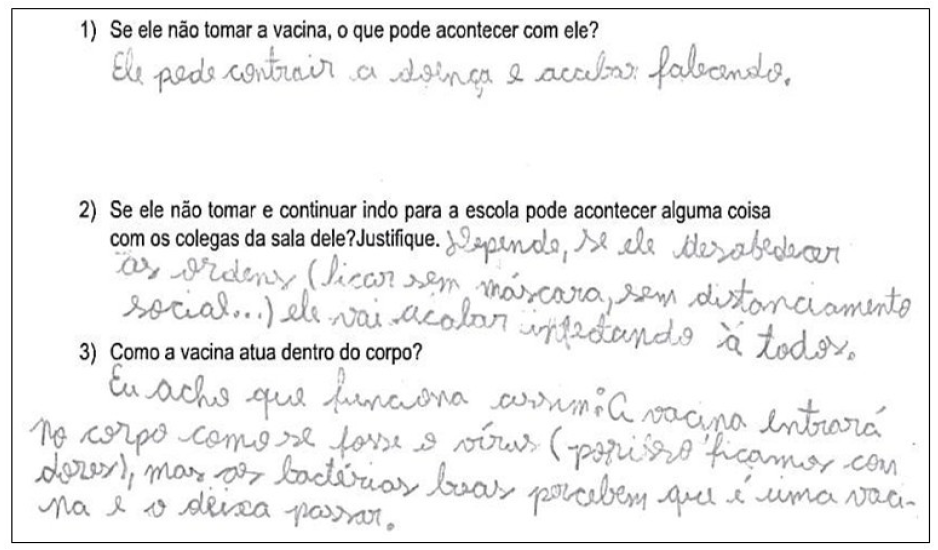 1) Se ele não tomar a vacina, o que pode acontecer com ele?
Ele pode contrair a doença e acabar falecendo.
2) Se ele não tomar e continuar indo para a escola pode acontecer alguma coisa
com os colegas da sala dele?Justifique. Depende, se ele desobedecer
as ordens (ficar sem máscara, sem distanciamento
social...) ele vai acabar infectando à todos.
3) Como a vacina atua dentro do corpo?
Eu acho que funciona assim: A vacina entrará
no corpo como se fosse o vírus (porisso ficamos com
dores), mas as bactérias boas percebem que é uma vaci-
na e o deixa passar.